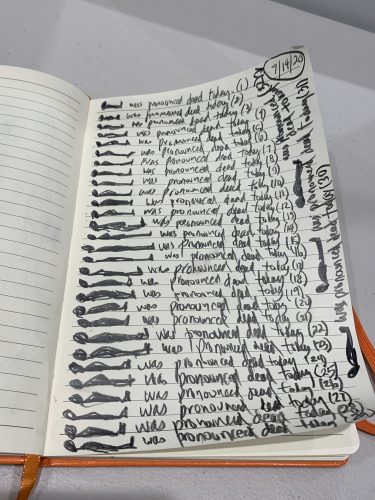 7/14/20
was pronounced dead today (1)
was pronounced dead today (2)
was pronounced dead today (3)
was pronounced dead today (4)
was pronounced dead today (5)
was pronounced dead today (6)
was pronounced dead today (7)
was pronounced dead today (8)
was pronounced dead today (9)
was pronounced dead today (10)
was pronounced dead today (11)
was pronounced dead today (12)
was pronounced dead today (13)
was pronounced dead today (14)
was pronounced dead today (15)
was pronounced dead today (16)
was pronounced dead today (17)
was pronounced dead today (18)
was pronounced dead today (19)
was pronounced dead today (20)
was pronounced dead today (21)
was pronounced dead today (22)
was pronounced dead today (23)
was pronounced dead today (24)
was pronounced dead today (25)
was pronounced dead today (26)
was pronounced dead today (27)
was pronounced dead today
was pronounced dead today
was pronounced dead today
was pronounced dead today (30)